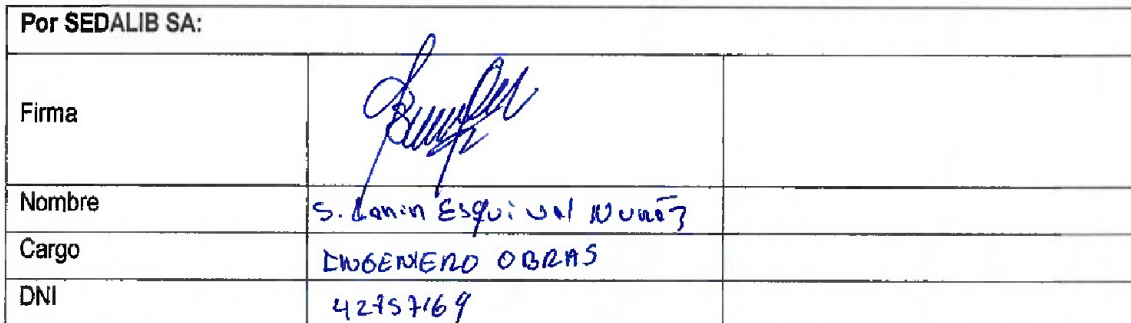 Por SEDALIB SA:
Firma
Nombre S. Esquivel Nuñez
Cargo INGENIERO OBRAS
DNI